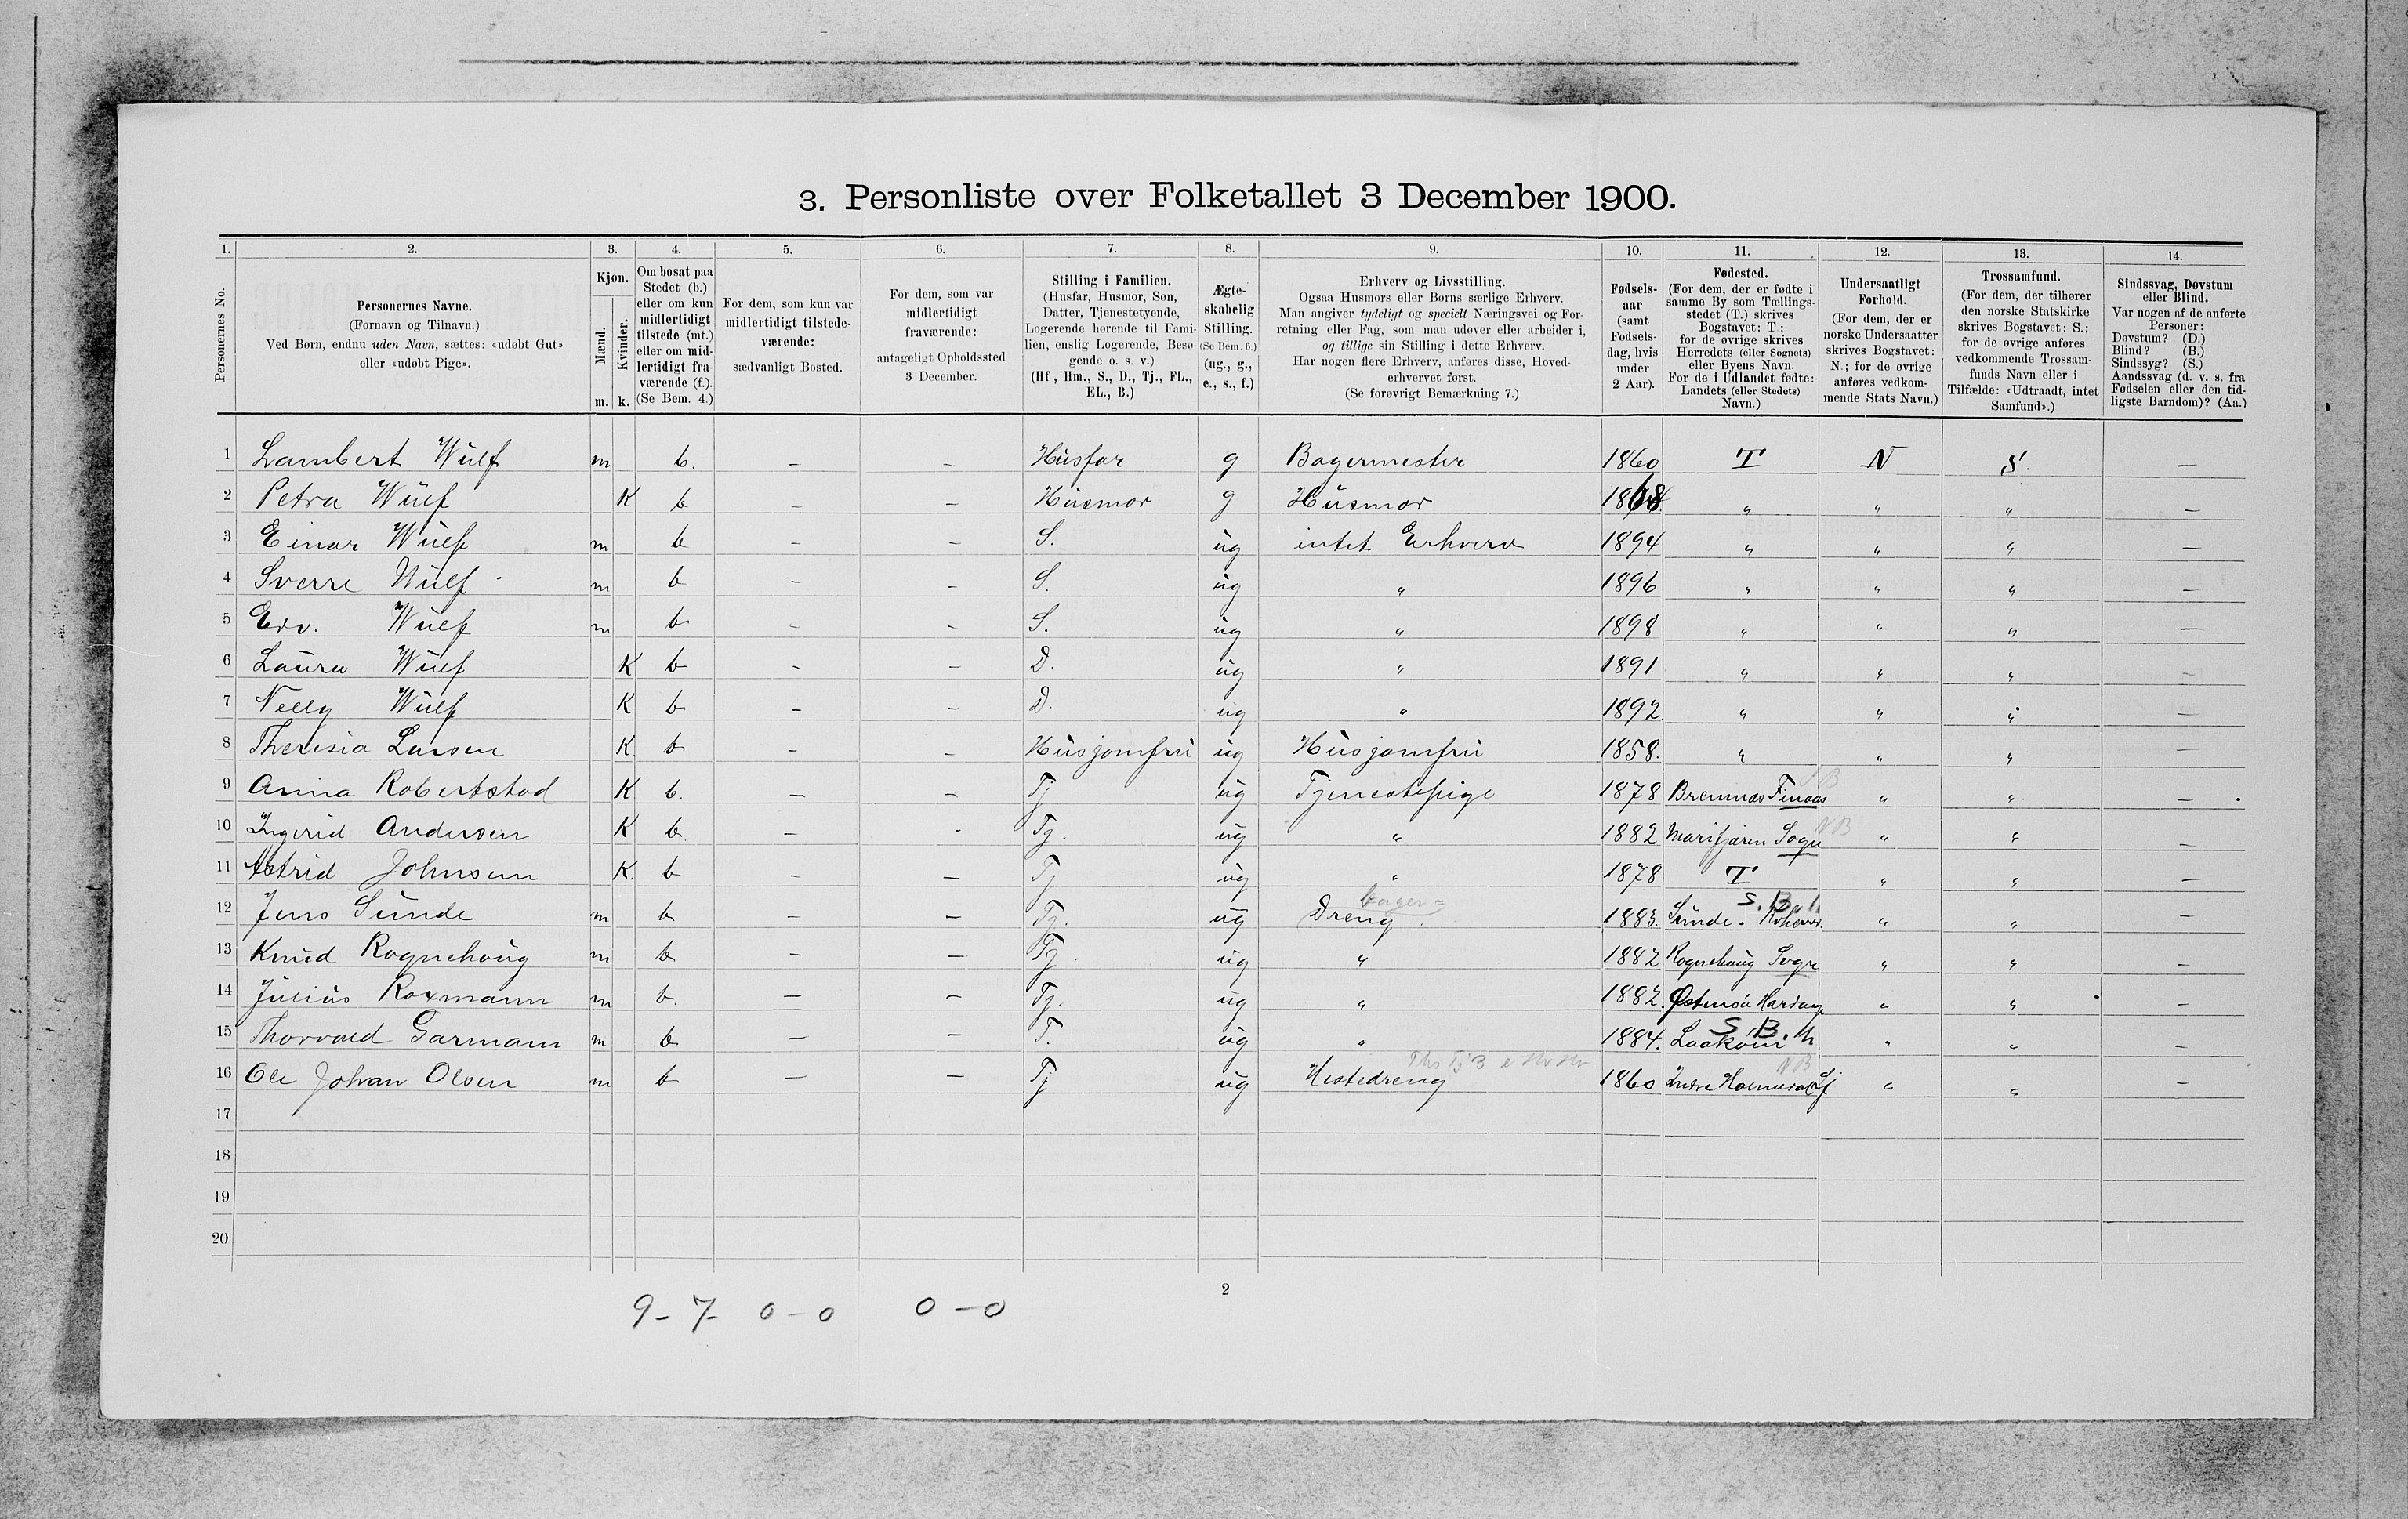 3. Personliste over Folketallet 3 December 1900.
1. 2. 3. 4. 5. 6. 7. 8. 9. 10. 11. 12. 13. 14.
Personernes No.
Personernes Navne.
(Fornavn og Tilnavn.)
Ved Børn, endnu uden Navn, sættes: «udøbt Gut»
eller «udøbt Pige».
Kjøn.
Mænd.
Kvinder.
m. k.
Om bosat paa
Stedet (b.)
eller om kun
midlertidigt
tilstede (mt.)
eller om mid-
lertidigt fra-
værende (f.).
(Se Bem. 4.)
For dem, som kun var
midlertidigt tilstede-
værende:
sædvanligt Bosted.
For dem, som var
midlertidigt
fraværende:
antageligt Opholdssted
3 December.
Stilling i Familien.
(Husfar, Husmor, Søn,
Datter, Tjenestetyende,
Logerende hørende til Fami-
lien, enslig Logerende, Besø-
gende o. s. v.)
(Hf, Hm., S., D., Tj., FL.,
EL., B.)
Ægte-
skabelig
Stilling.
(Se Bem. 6.)
(ug., g.,
e., s., f.)
Erhverv og Livsstilling.
Ogsaa Husmors eller Børns særlige Erhverv.
Man angiver tydeligt og specielt Næringsvei og For-
retning eller Fag, som man udøver eller arbeider i,
og tillige sin Stilling i dette Erhverv.
Har nogen flere Erhverv, anføres disse, Hoved-
erhvervet først.
(Se forøvrigt Bemærkning 7.)
Fødsels-
aar
(samt
Fødsels-
dag, hvis
under
2 Aar).
Fødested.
(For dem, der er fødte i
samme By som Tællings-
stedet (T.) skrives
Bogstavet: T;
for de øvrige skrives
Herredets (eller Sognets)
eller Byens Navn.
For de i Udlandet fødte:
Landets (eller Stedets)
Navn.)
Undersaatligt
Forhold.
(For dem, der er
norske Undersaatter
skrives Bogstavet:
N.; for de øvrige
anføres vedkom-
mende Stats Navn.)
Trossamfund.
(For dem, der tilhører
den norske Statskirke
skrives Bogstavet: S.;
for de øvrige anføres
vedkommende Trossam-
funds Navn eller i
Tilfælde: «Udtraadt, intet
Samfund».)
Sindssvag, Døvstum
eller Blind.
Var nogen af de anførte
Personer:
Døvstum? (D.)
Blind? (B.)
Sindssyg? (S.)
Aandssvag (d. v. s. fra
Fødselen eller den tid-
ligste Barndom)? (Aa.)
1 Lambert Wulf m b. – – Husfar g Bagermester 1860 T N S. –
2 Petra Wulf K b – – Husmor g Husmor 1868 " " " –
3 Einar Wulf m b – – S. ug intet Erhverv 1894 " " " –
4 Sverre Wulf m b – – S. ug " 1896 " " " –
5 Edv. Wulf m b – – S. ug " 1898 " " " –
6 Laura Wulf K b – – D. ug " 1891 " " " –
7 Nelly Wulf K b – – D. ug " 1892 " " " –
8 Theresia Larsen K. b – – Husjomfru ug Husjomfru 1858. " " " –
9 Anna Robertstad K b. – – Tj ug Tjenestepige 1878 Bremnæs Finaas " " –
10 Ingerid Andersen K b – - Tj. ug " 1882 Marifjæren Sogn NB " " –
11 Astrid Johnsen K. b – – Tj ug " 1878 T " " –
12 Jens Sunde m b – – Tj. ug bager= Dreng 1883. Sunde. S.B. " " –
13 Knud Rognehoug m b – – Tj. ug " 1882 Rognehoug Sogn " " –
14 Julius Roxmann m b. – – Tj. ug " 1882. Østensø Hardang " " –
15 Thorvald Garmann m b – – T. ug " 1884. S.B. " " –
16 Ole Johan Olsen m b – – Tj ug Hestedreng 1860 Indre Holmedal Sf NB " " –
17
18
19
20
9 - 7 - 0 - 0 0 - 0
2